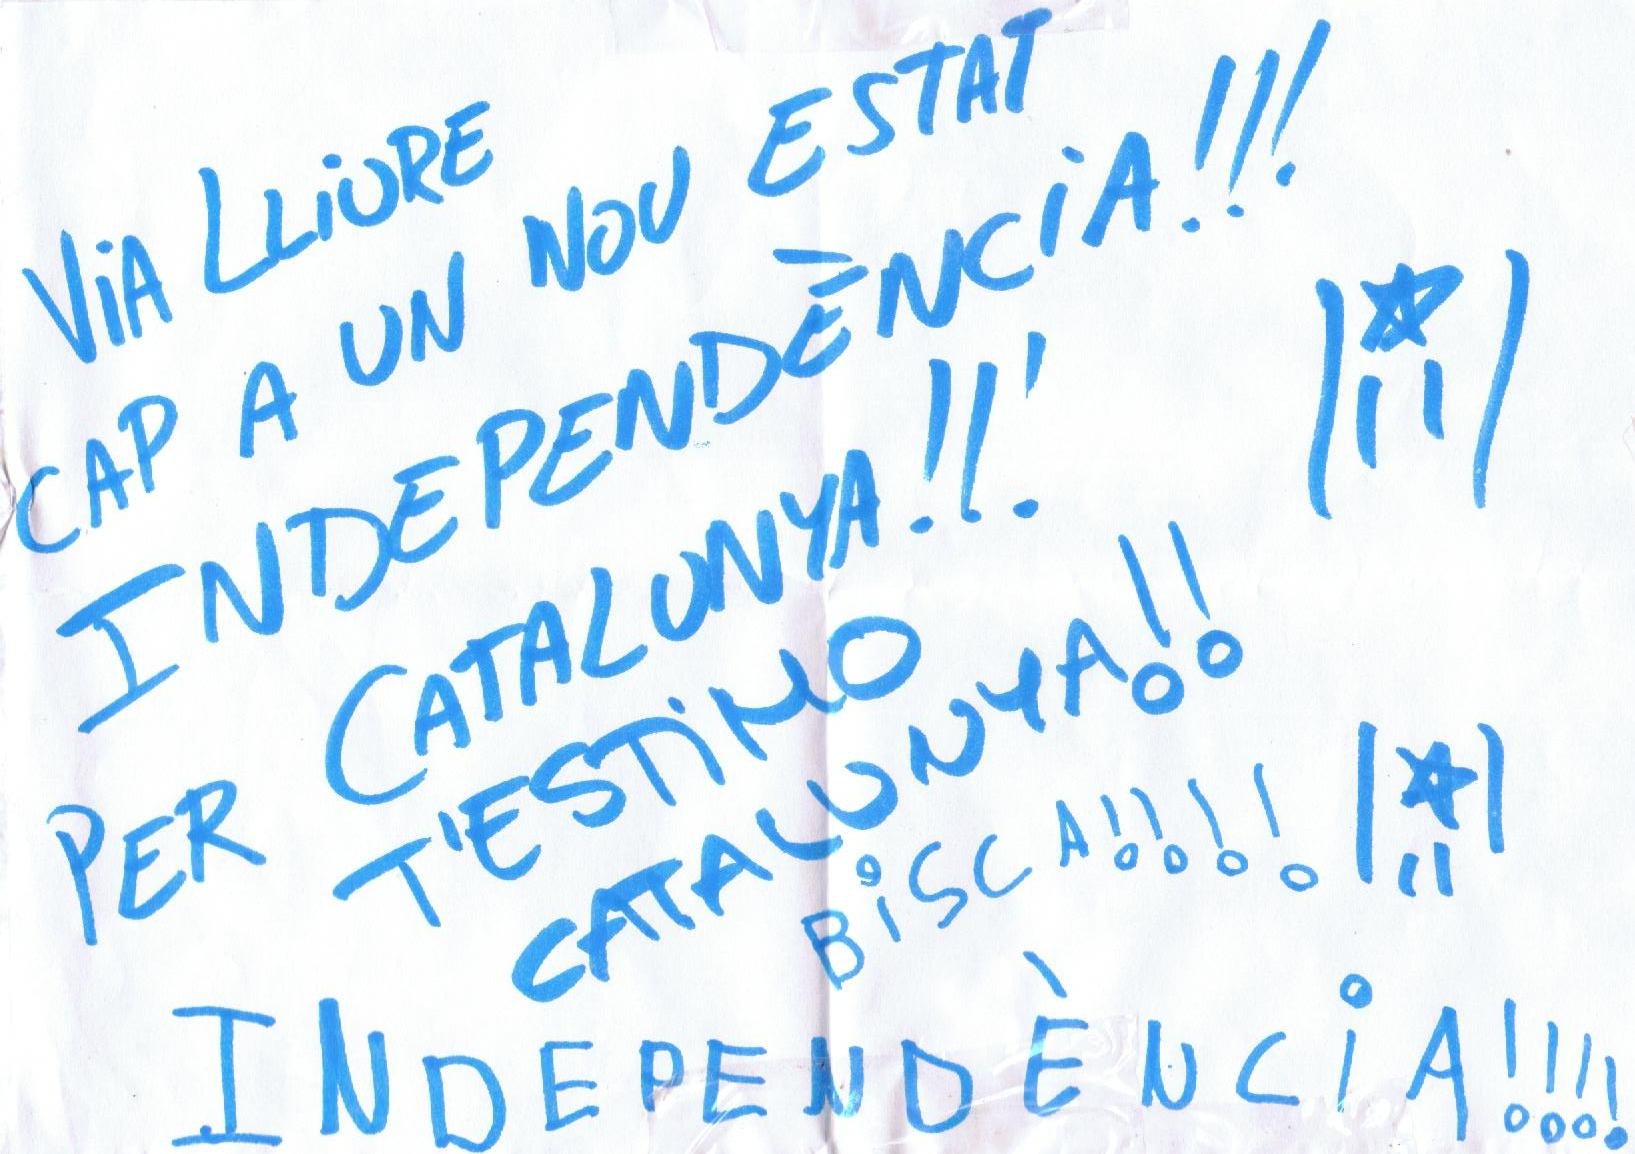 ViA LLiURE
CAP A UN NOU ESTAT
INDEPENDÈNCiA!!!
PER CATALUNYA!!!
T'ESTiMO
CATALUNYA!!
BiSCA!!!!
INDEPENDÈNCiA!!!!